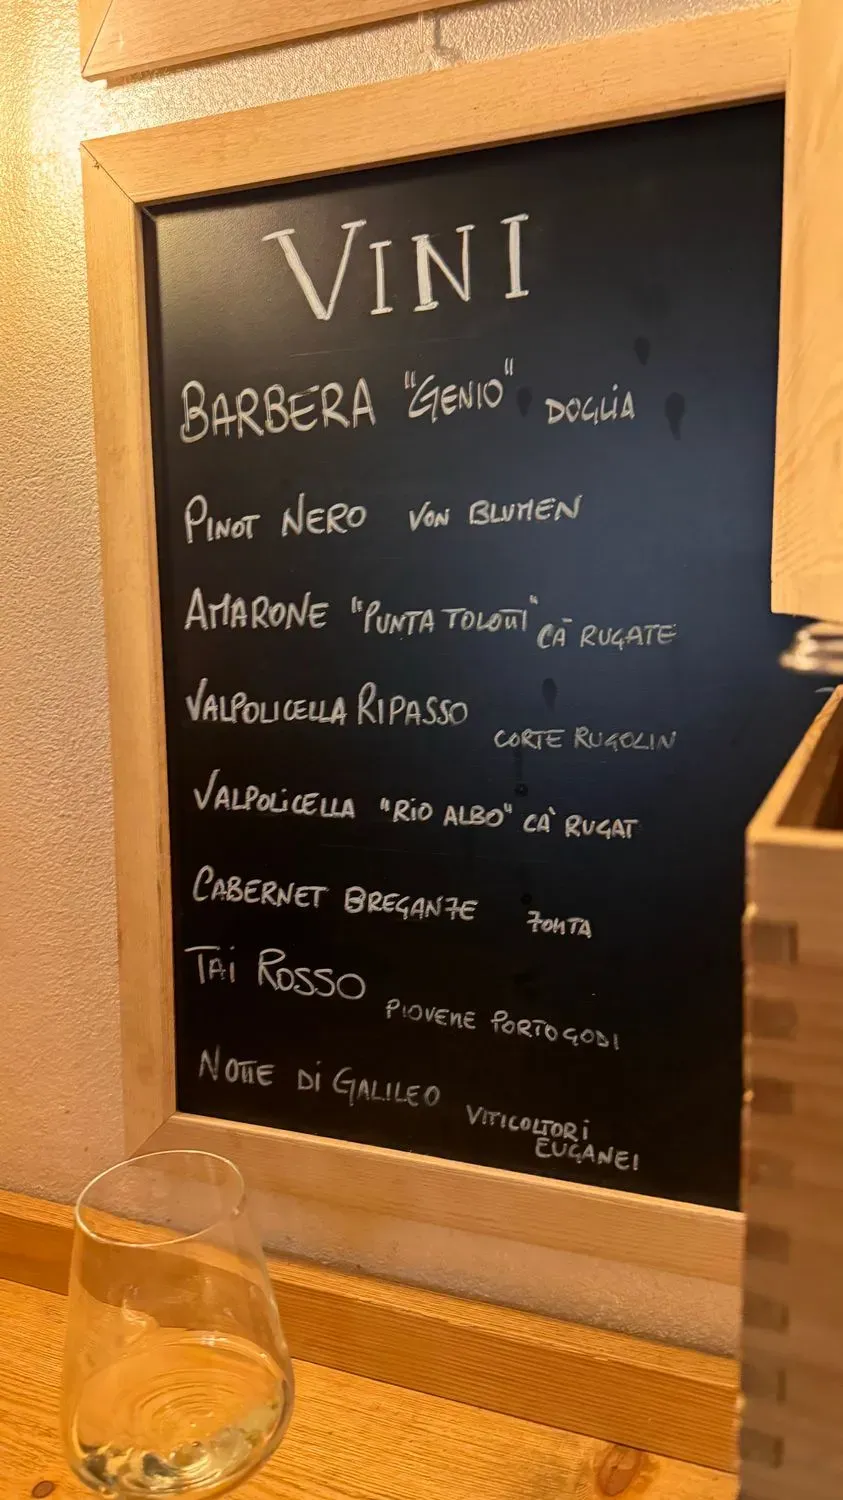 VINI
BARBERA "GENIO" DOGLIA
PINOT NERO VON BLUMEN
AMARONE "PUNTA TOLOTTI" CÀ RUGATE
VALPOLICELLA RIPASSO CORTE RUGOLIN
VALPOLICELLA "RIO ALBO" CÀ RUGAT
CABERNET BREGANZE ZONTA
TAI ROSSO PIOVENE PORTOGODI
NOTTE DI GALILEO VITICOLTORI
EUGANEI